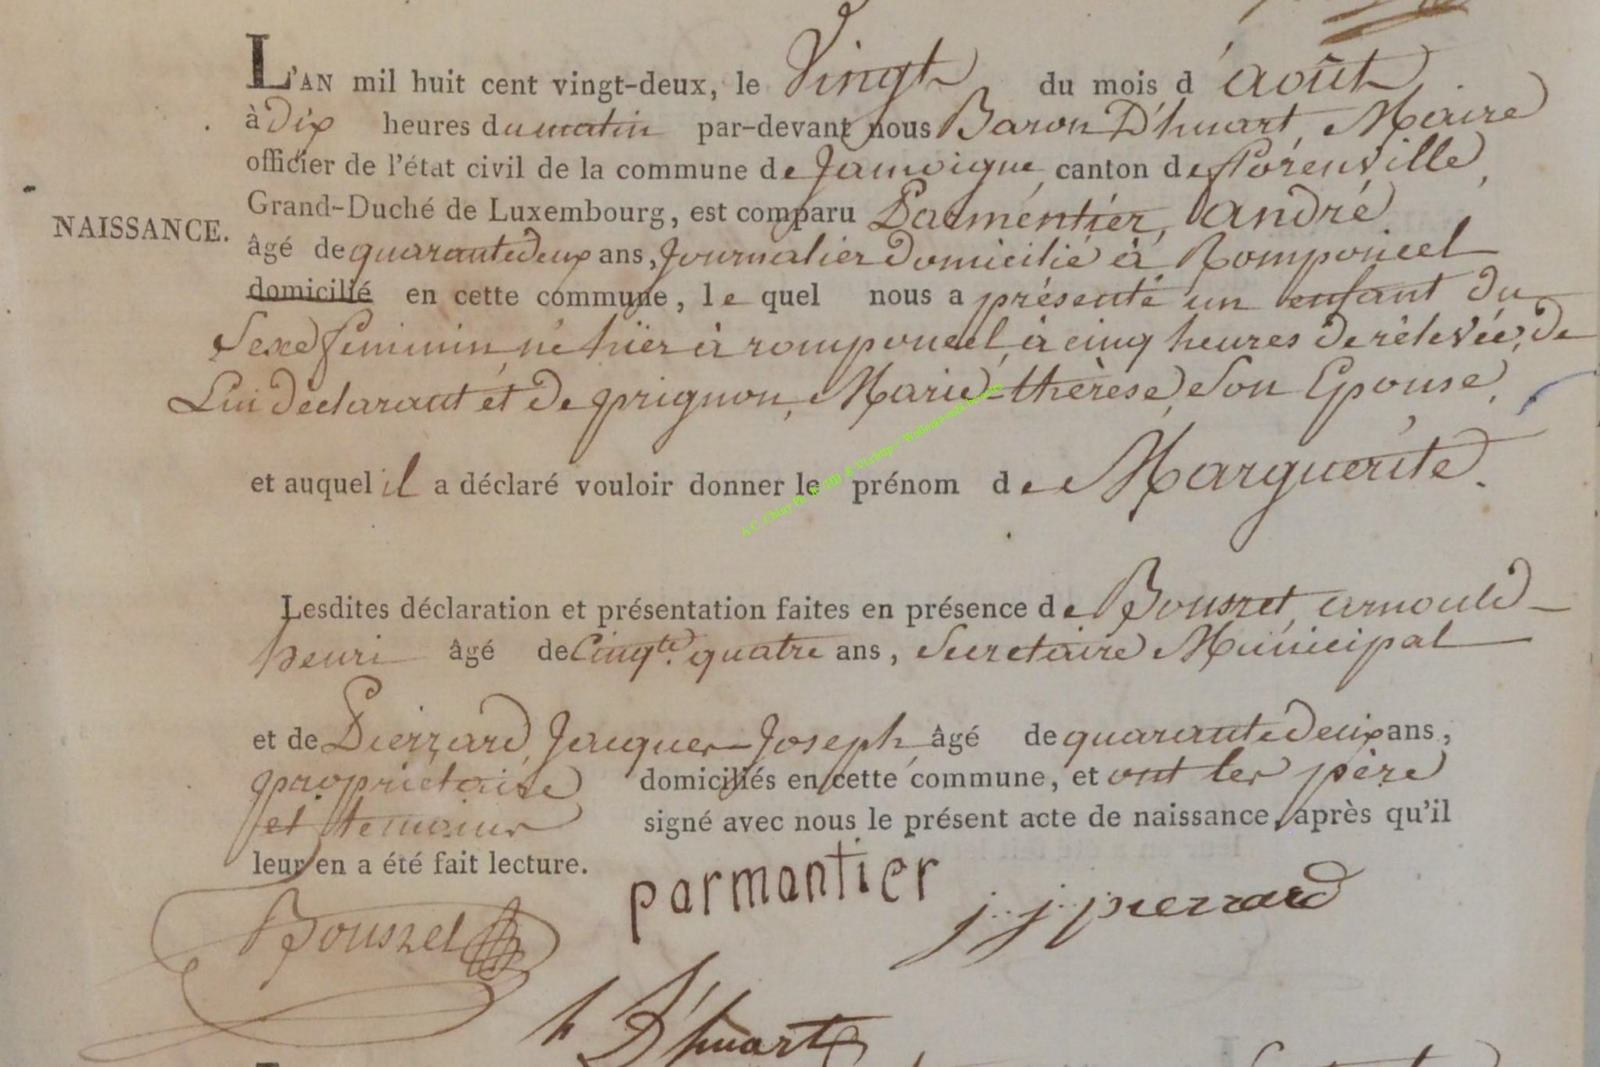 L'AN mil huit cent vingt-deux, le Vingt du mois d'août
à dix heures du matin par-devant nous Baron D'huart, Maire
officier de l'état civil de la commune de Jamoigne, canton de florenville,
Grand-Duché de Luxembourg, est comparu Parmentier, andré
NAISSANCE.
âgé de quarantedeux ans, Journalier domicilié à Romponcel
domicilié en cette commune, le quel nous a présenté un enfant du
Sexe féminin, né hier à romponcel, à cinq heures de rélevée, de
Lui déclarant et de grignon, Marie-thérèse, Son Epouse,
et auquel il a déclaré vouloir donner le prénom de Marguerite.
Lesdites déclaration et présentation faites en présence de Bouszet, arnould-
henri âgé de Cinqte quatre ans, Secretaire Municipal
et de Pierrard, Jacques-Joseph, âgé de quarantedeux ans,
propriétaire domiciliés en cette commune, et ont les père
et temoins signé avec nous le présent acte de naissance, après qu'il
leur en a été fait lecture.
parmantier
j. j. pierrard
Bouszet
h D'huart